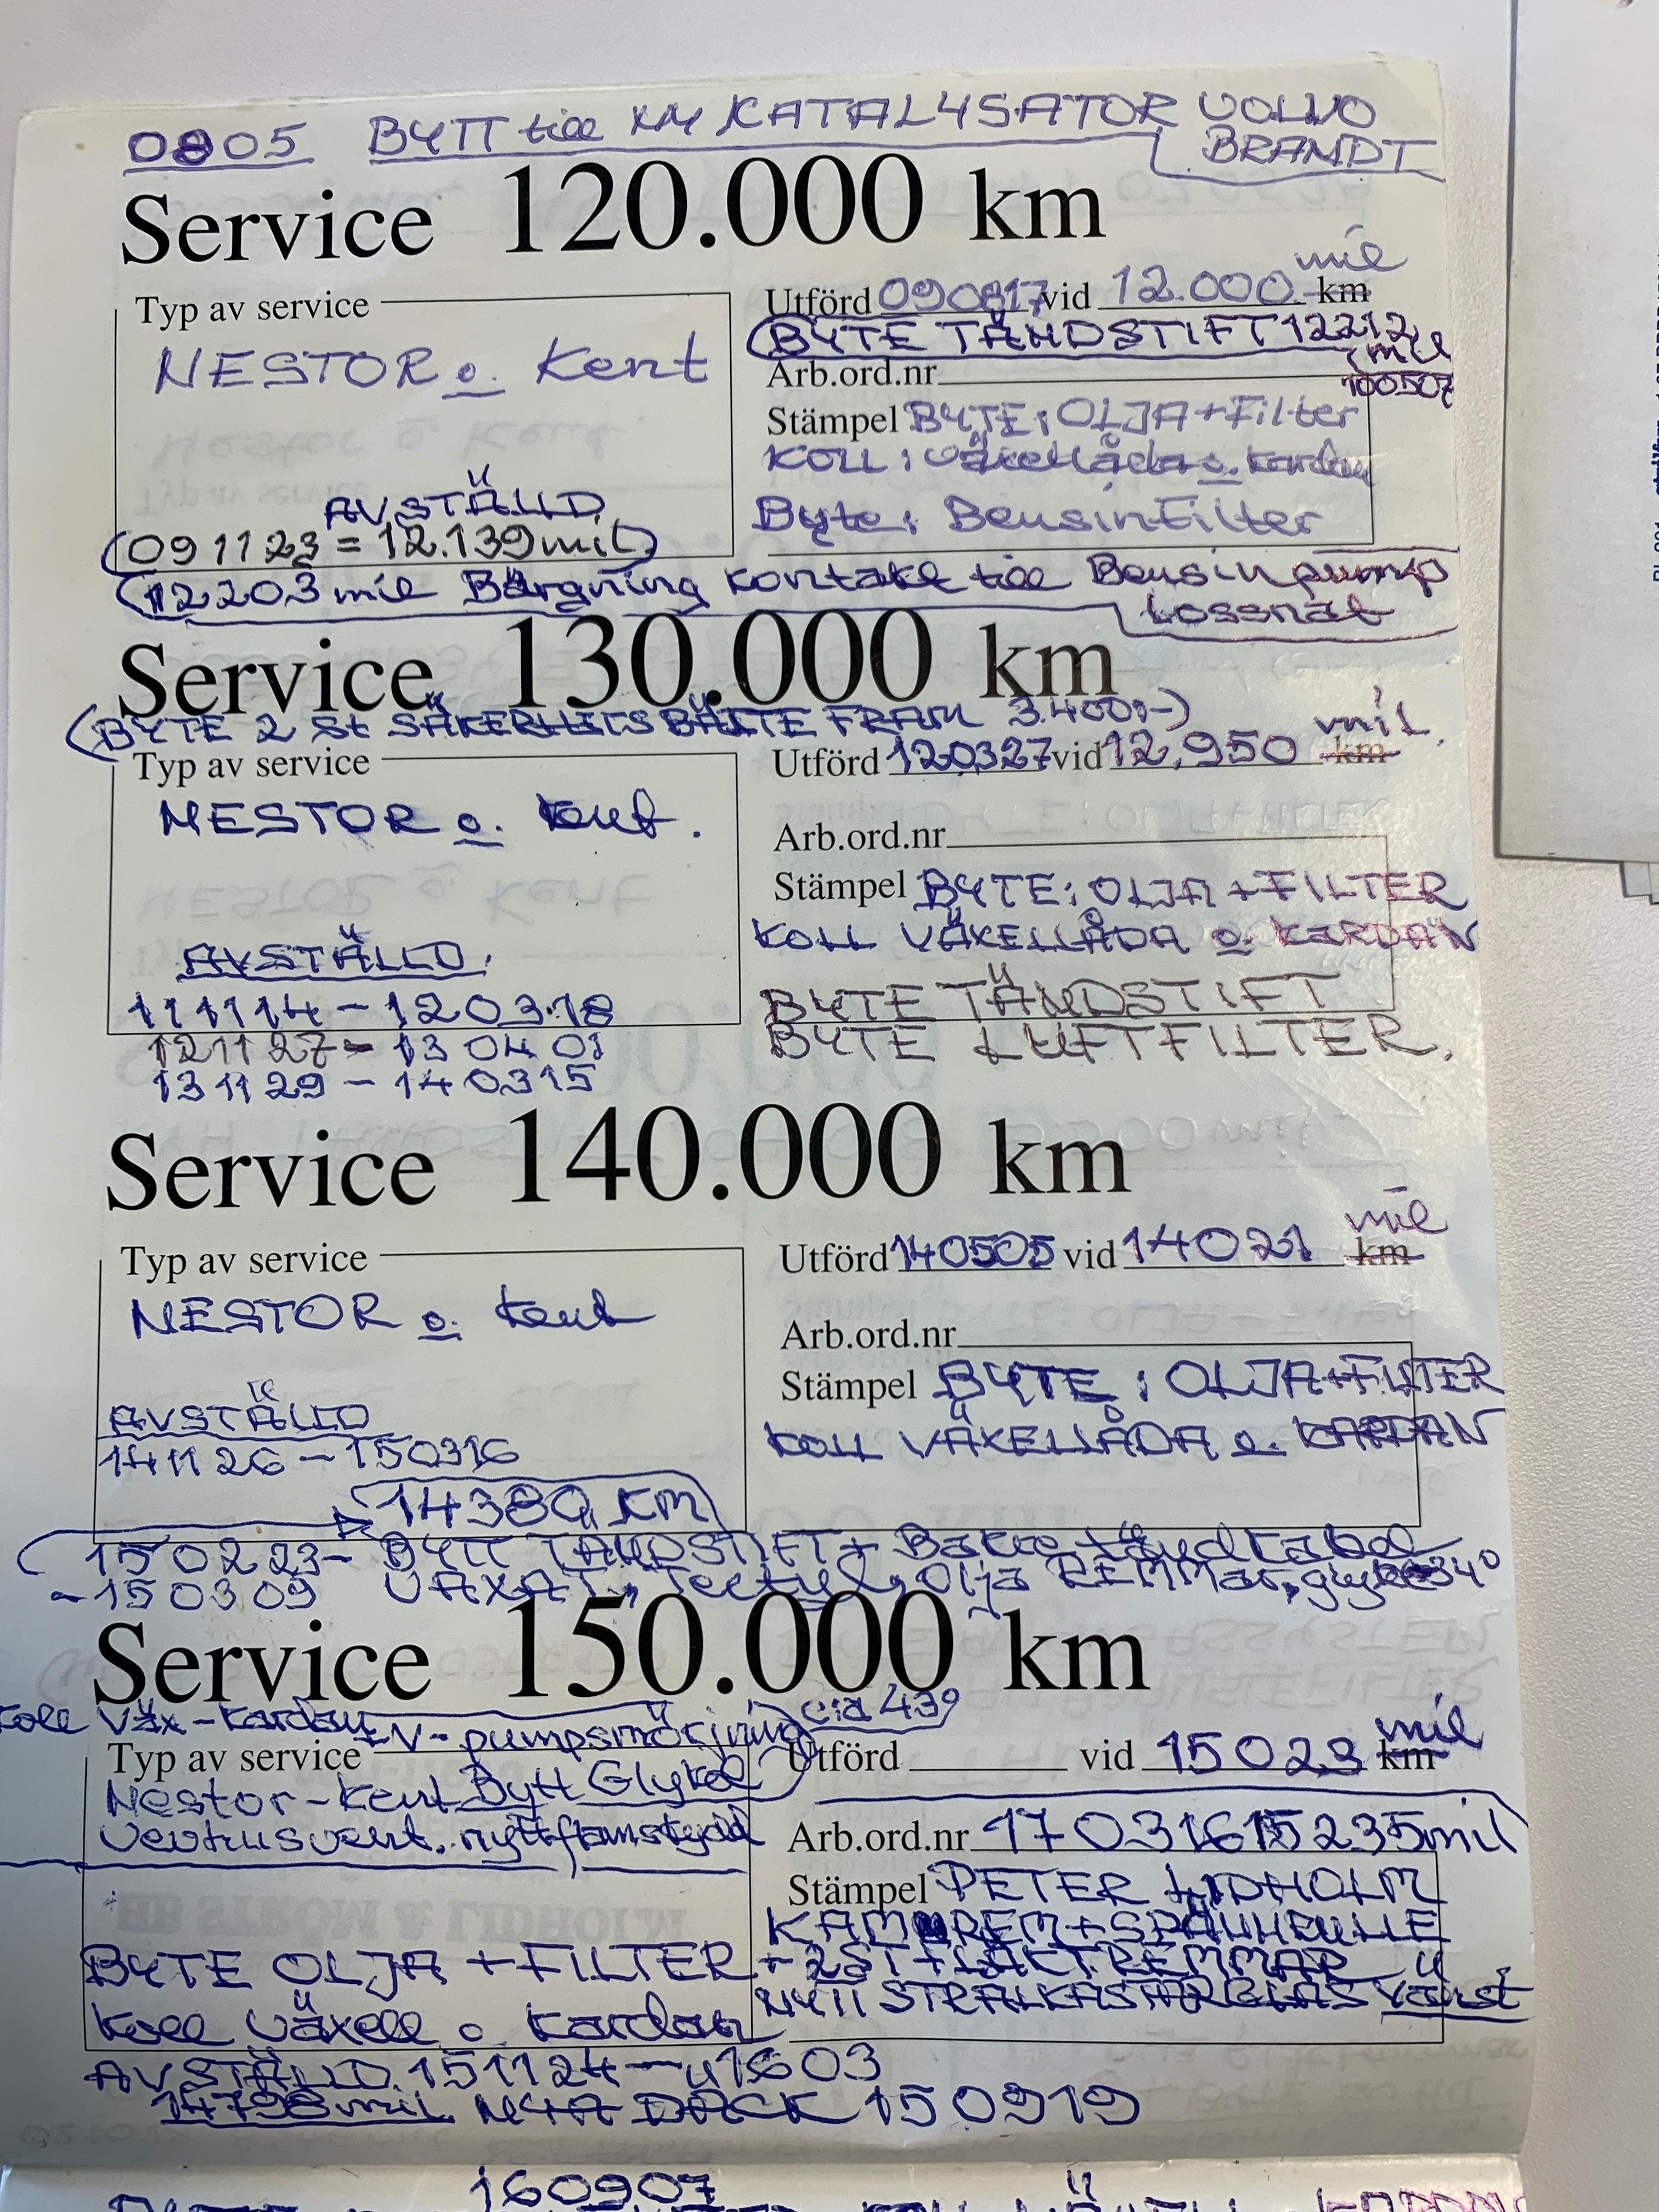 0805 BYTT till KATALYSATOR VOLVO
BRANDT
Service 120.000 km
mil
Typ av service
Utförd 090817 vid 12.000 km
BYTE TÄNDSTIFT 12212
mil
NESTOR o. Kent
Arb.ord.nr
100507
Stämpel BYTE: OLJA+Filter
KOLL: växellåda o. kardan
AVSTÄLLD
Byte: Bensinfilter
(091123 = 12.139 mil)
(12203 mil Bärgning kontakt till Bensinpump
Lossnat
Service 130.000 km
(BYTE 2 st SÄKERHETSBÄLTE FRAM 3.400:-)
mil.
Typ av service
Utförd 120327 vid 12,950 km
NESTOR o. Kent.
Arb.ord.nr
Stämpel BYTE: OLJA+FILTER
KOLL VÄXELLÅDA o. KARDAN
AVSTÄLLD.
111114 - 120318
BYTE TÄNDSTIFT
121127 - 130401
BYTE LUFTFILTER.
131129 - 140315
Service 140.000 km
mil
Typ av service
Utförd 140505 vid 14021 km
NESTOR o. Kent
Arb.ord.nr
Stämpel BYTE: OLJA+FILTER
AVSTÄLLD
KOLL VÄXELLÅDA o. KARDAN
141126 - 150316
14380 KM
(150223- BYTT TÄNDSTIFT+ tändkabel
-150309 VAXAT, Tectyl, Olja REMMar, 34°
Service 150.000 km
Koll Väx-Kardan-V-pumpsmörjning cia 439
mil
Typ av service
Utförd vid 15023 km
Nestor-Kent Bytt Glykol
Arb.ord.nr 170316 15235 mil
Stämpel PETER LIDHOLM
KAMREM+SPÄNNRULLE
BYTE OLJA +FILTER
+2ST FLÄKTREMMAR
NYTT STRÅLKASTARGLAS Vänst
Koll växell o. Kardan
AVSTÄLLD 151124 - 1603
14798 mil NYA DÄCK 150919
160907